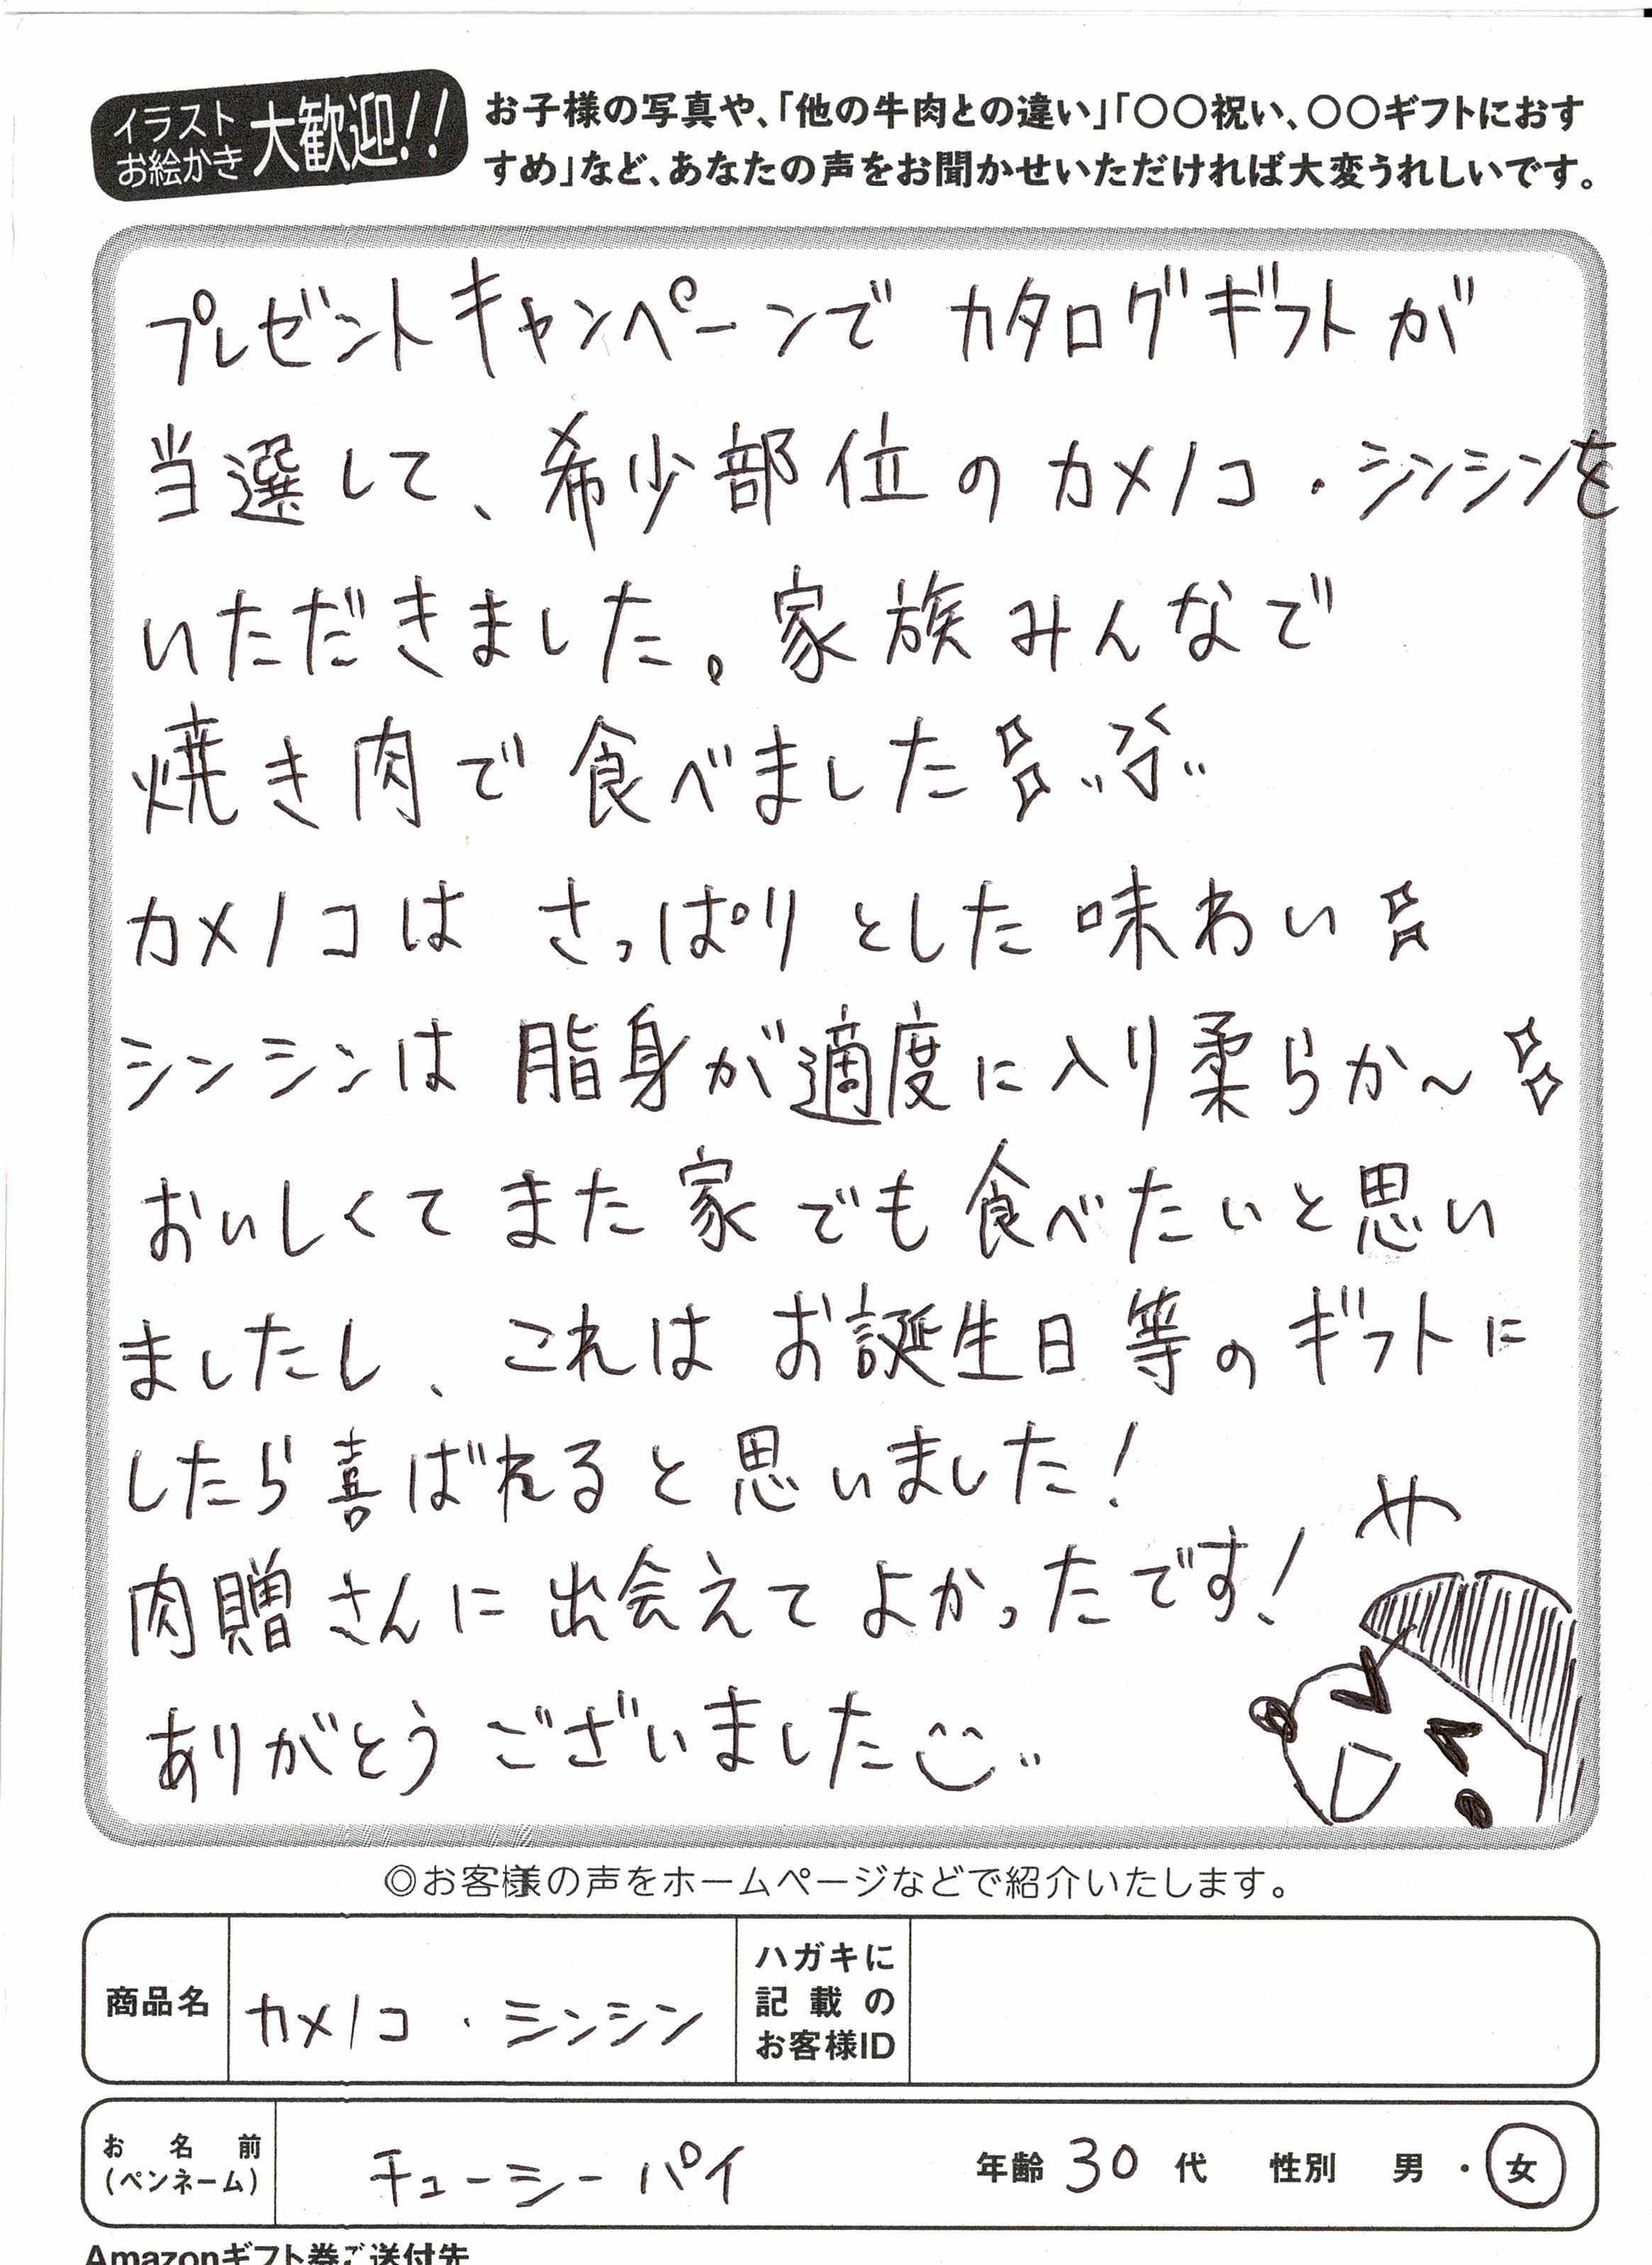 イラスト
お絵かき
大歓迎!!
お子様の写真や、「他の牛肉との違い」「〇〇祝い、〇〇ギフトにおす
すめ」など、あなたの声をお聞かせいただければ大変うれしいです。
プレゼントキャンペーンで カタログギフトが
当選して、希少部位のカメノコ・シンシンを
いただきました。家族みんなで
焼き肉で食べました
カメノコは さっぱりとした味わい
シンシンは 脂身が適度に入り柔らか~
おいしくて また家でも食べたいと思い
ましたし、これは お誕生日等のギフトに
したら喜ばれると思いました!
肉贈さんに出会えてよかったです!
ありがとうございました
◎お客様の声をホームページなどで紹介いたします。
商品名
カメノコ・シンシン
ハガキに
記載の
お客様ID
お名前
(ペンネーム)
チューシーパイ
年齢 30 代 性別 男・女
Amazonギフト券ご送付先